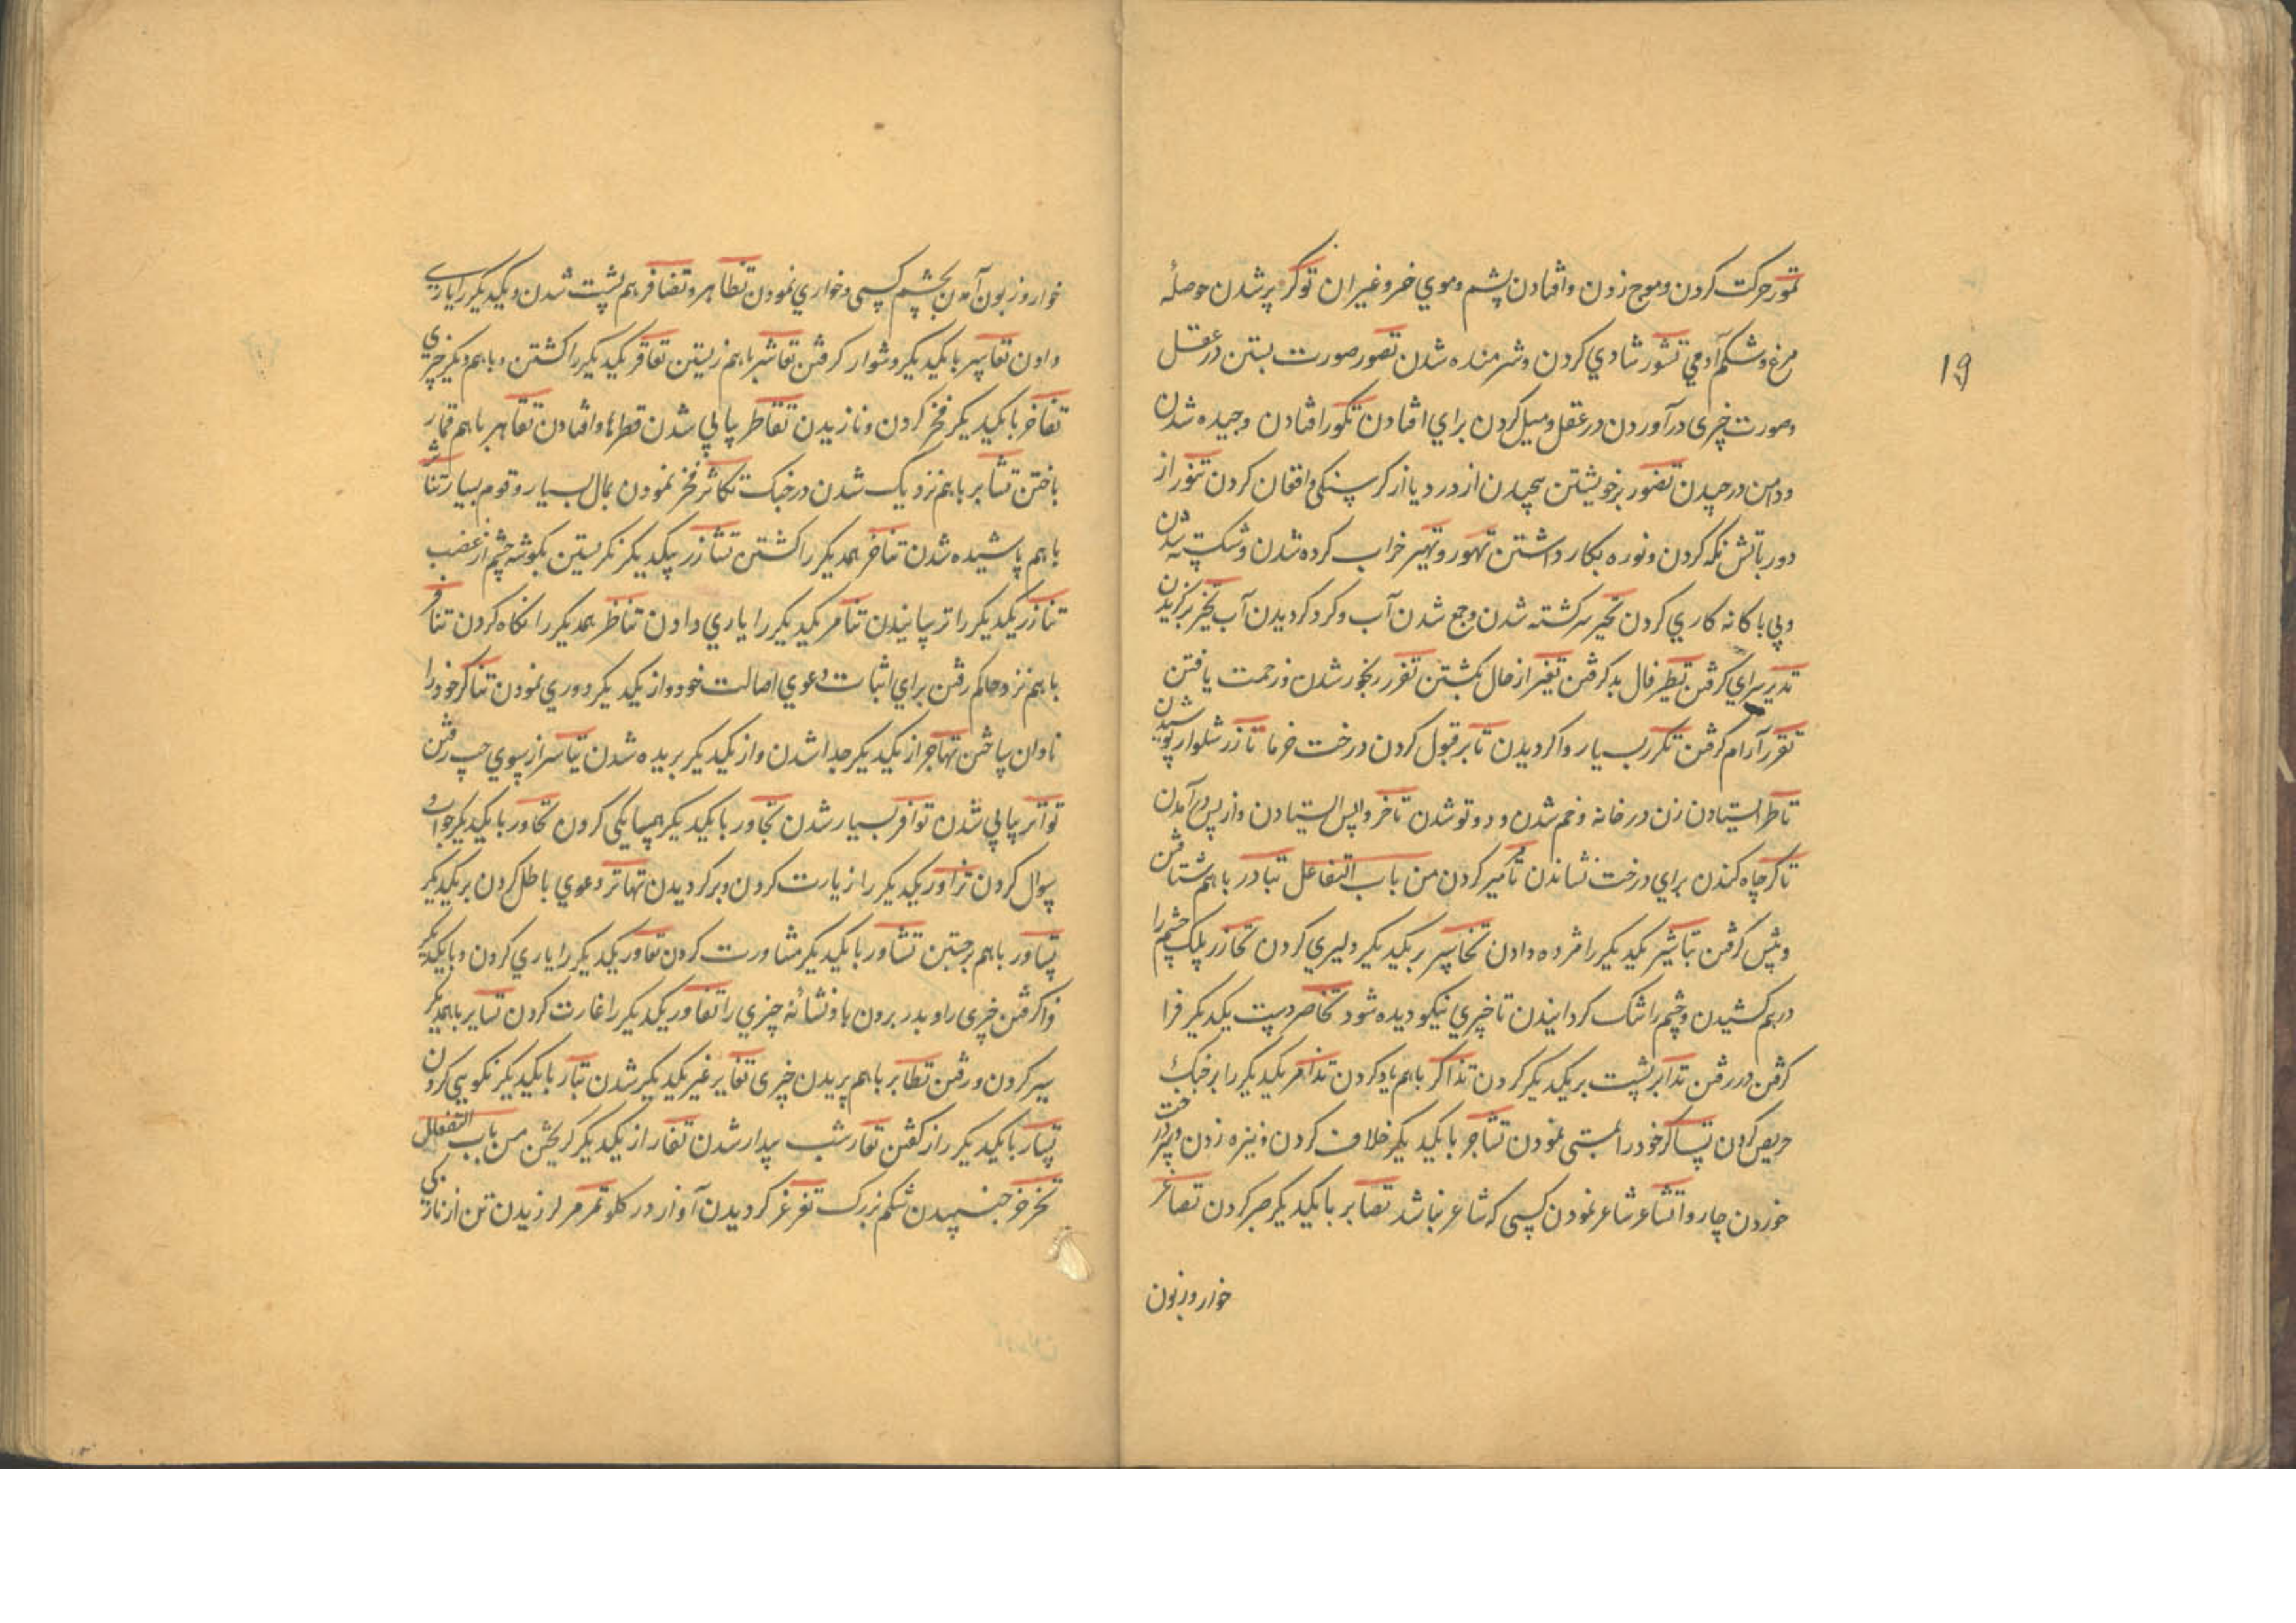 تمور حرکت کردن و موج زدن و افتادن پشم و موي خر و غیر ان توکر پر شدن حوصلهٔ
مرغ و شکم آدمي تشور شادي کردن و شرمنده شدن تصور صورت بستن در عقل
و صورت چیزی در آوردن در عقل و میل کردن براي افتادن تکور افتادن و چیده شدن
و دامن در چیدن تضور بر خویشتن پیچیدن از درد یا از کرسنکی و افغان کردن تنور از
دور باتش نکه کردن و نوره بکار داشتن تهور و تهیر خراب کرده شدن و شکسته شدن
و بي باکانه کاري کردن تحیر سرکشته شدن و جمع شدن آب و کرد کردیدن آب تخیر برکزیدن
تدیر سراي کرفتن تطیر فال بد کرفتن تغیر از حال بکشتن تضرر رنجور شدن و زحمت یافتن
تقرر آرام کرفتن تکرر بسیار وا کردیدن تابر قبول کردن درخت خرما تازر شلوار پوشیدن
تاطر ایستادن زن در خانه و خم شدن و دو تو شدن تاخر واپس ایستادن و از پس در آمدن
تاکر چاه کندن براي درخت نشاندن تامر میر کردن من باب التفاعل تبادر باهم شتافتن
و پیش کرفتن تباشر یکدیکر را مژده دادن تجاسر بر یکدیکر دلیري کردن تخازر پلک چشم را
درهم کشیدن و چشم را تنک کردانیدن تا چیزي نیکو دیده شود تخاصر دست یکدیکر فرا
کرفتن در رفتن تدابر پشت بر یکدیکر کردن تذاکر باهم یاد کردن تذامر یکدیکر را بر جنک
حریص کردن تساکر خود را مستی نمودن تشاجر با یکدیکر خلاف کردن و نیزه زدن و بر درخت
خوردن چاروا تشاعر شاعر نمودن کسی که شاعر نباشد تصابر با یکدیکر صبر کردن تصاغر
خوار و زبون
19
خوار و زبون آمدن بچشم کسی و خواري نمودن تظاهر و تضافر هم پشت شدن و یکدیکر را یاری
دادن تعاسر با یکدیکر دشوار کرفتن تعاشر باهم زیستن تعاقر یکدیکر را کشتن و باهم دیکر چیزی
تفاخر با یکدیکر فخر کردن و نازیدن تقاطر پیاپي شدن قطرها و افتادن تقامر باهم قمار
باختن تشابر باهم نزدیک شدن در جنک تکاثر فخر نمودن بمال بسیار و قوم بسیار تناثر
باهم پاشیده شدن تناحر همدیکر را کشتن تشازر بیکدیکر نکریستن بکوشه چشم از غضب
تناذر یکدیکر را ترسانیدن تناصر یکدیکر را یاري دادن تناظر همدیکر را نکاه کردن تنافر
باهم نزد حاکم رفتن براي اثبات دعوي اصالت خود و از یکدیکر دوري نمودن تناکر خود را
نادان ساختن تهاجر از یکدیکر جدا شدن و از یکدیکر بریده شدن تیاسر از سوي چپ رفتن
تواتر پیاپي شدن توافر بسیار شدن تجاور با یکدیکر همسایکی کردن تحاور با یکدیکر جواب و
سوال کردن تزاور یکدیکر را زیارت کردن و برکردیدن تهاتر دعوي باطل کردن بر یکدیکر
تساور باهم برجستن تشاور با یکدیکر مشاورت کردن تعاور یکدیکر را یاري کردن و با یکدیکر
فرا کرفتن چیزی را و بدر بردن باد نشانه چیزي را تغاور یکدیکر را غارت کردن تسایر باهمدیکر
سیر کردن و رفتن تطایر باهم پریدن چیزی تغایر غیر یکدیکر شدن تبار با یکدیکر نکویي کردن
تسار با یکدیکر راز کفتن تعار شب بیدار شدن تفار از یکدیکر کریختن من باب التفعلل
تخرخر جنبیدن شکم بزرک تغرغر کردیدن آواز در کلو تمرمر لرزیدن تن از نازکی